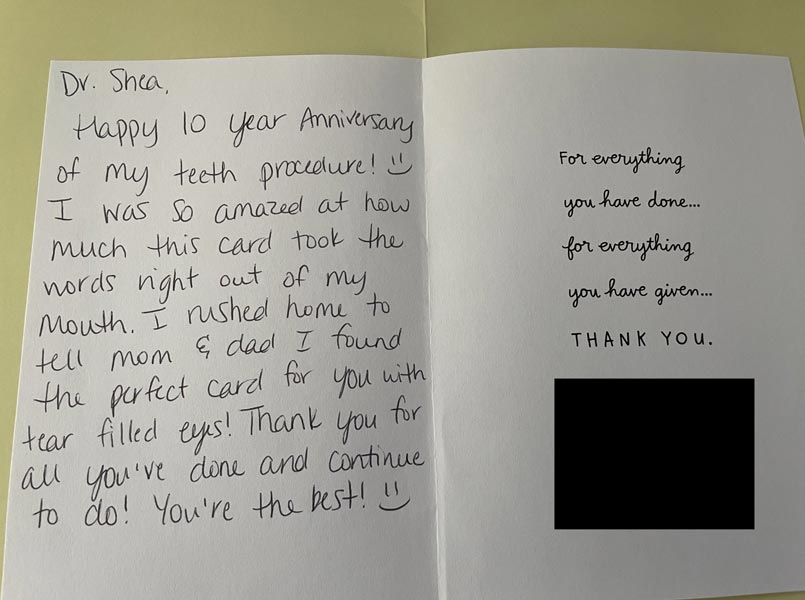 Dr. Shea,
Happy 10 year Anniversary
of my teeth procedure!
I was so amazed at how
much this card took the
words right out of my
mouth. I rushed home to
tell mom & dad I found
the perfect card for you with
tear filled eyes! Thank you for
all you've done and continue
to do! You're the best!
For everything
you have done...
for everything
you have given...
THANK YOU.